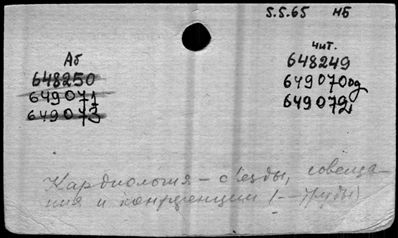 5.5.65 НБ
Аб
648250
649071
649073
чит.
648249
649070од
649072
Кардиология – съезды, совеща-
ния и конференции (–Труды)